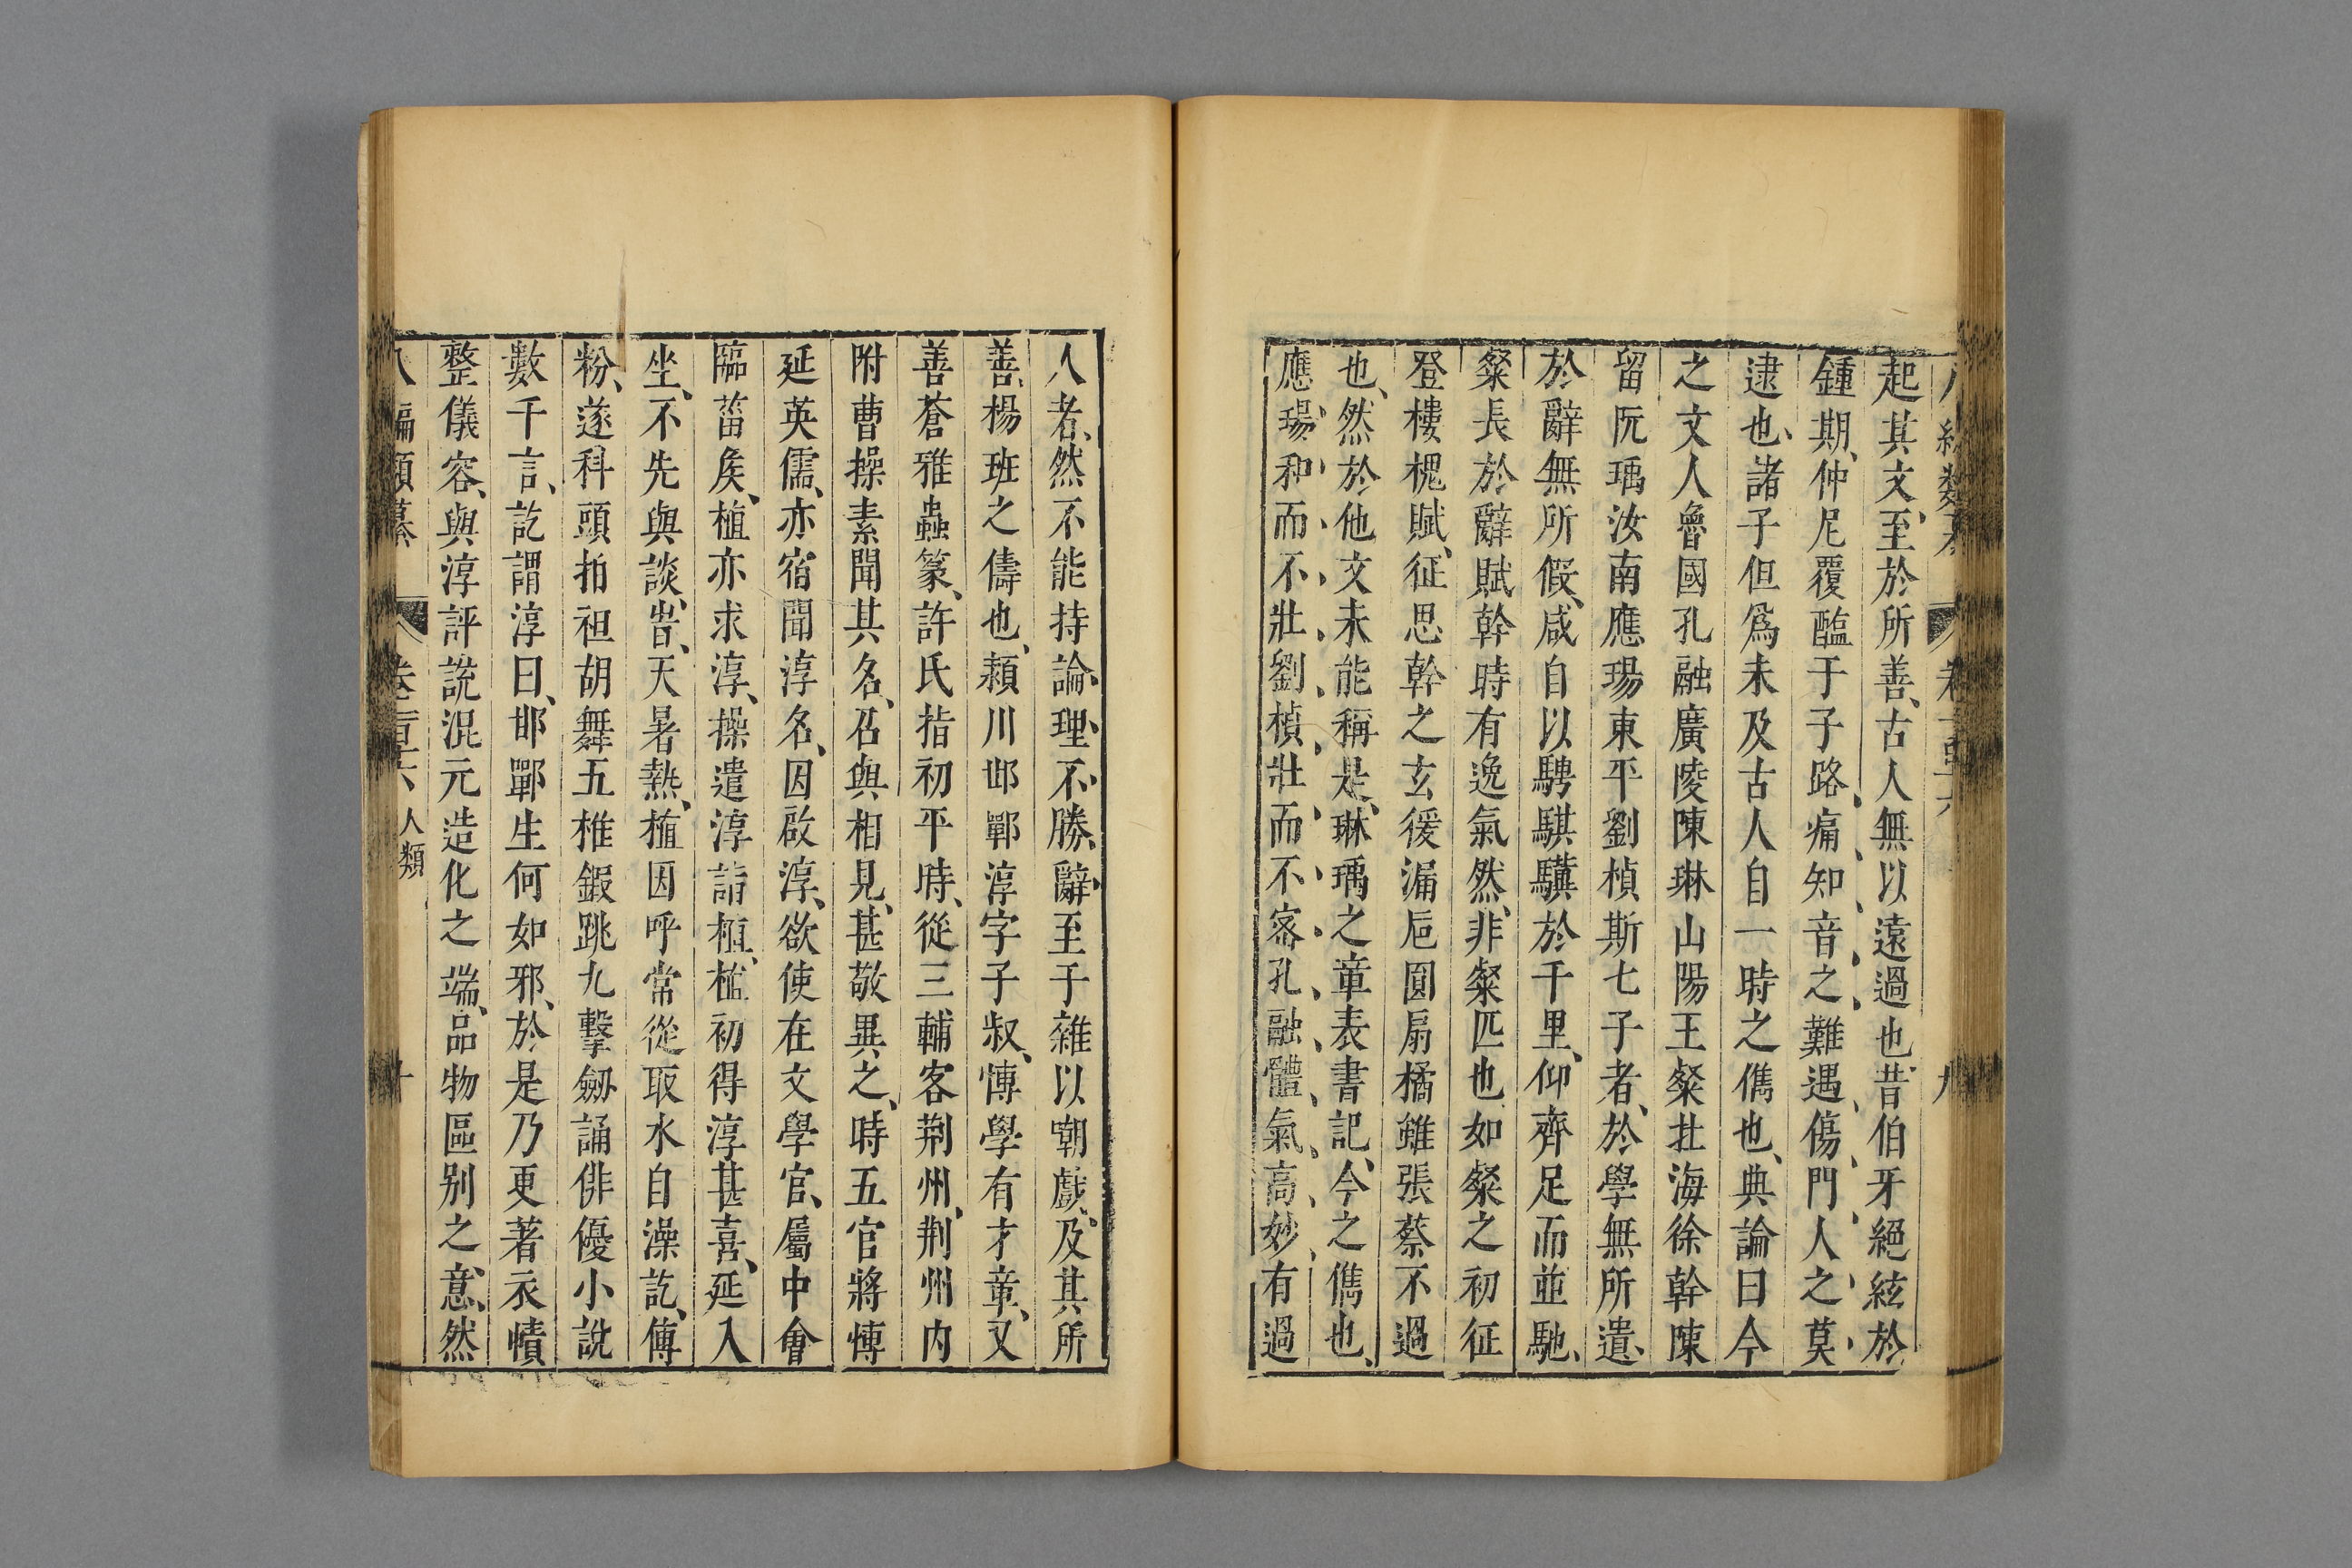 起其文、至於所善、古人無以遠過也、昔伯牙絕絃於
鍾期、仲尼覆醢于子路、痛知音之難遇、傷門人之莫
逮也、諸子但為未及古人自一時之儁也、典論曰今
之文人魯國孔融廣陵陳琳山陽王粲北海徐幹陳
留阮瑀汝南應瑒東平劉楨斯七子者、於學無所遺、
於辭無所假、咸自以騁騏驥於千里、仰齊足而並馳、
粲長於辭賦幹時有逸氣然、非粲匹也如粲之初征
登樓槐賦、征思幹之玄猨漏卮圓扇橘雖張蔡不過
也、然於他文未能稱是、琳瑀之章表書記、今之儁也、
應瑒和而不壯劉楨壯而不密孔融體氣高妙有過
人者、然不能持論理不勝辭至于雜以嘲戲、及其所
善、楊班之儔也、潁川邯鄲淳字子叔、博學有才章、又
善蒼雅蟲篆、許氏指初平時、從三輔客荆州、荆州內
附曹操素聞其名、召與相見、甚敬異之、時五官將博
延英儒、亦宿聞淳名、因啟淳、欲使在文學官、屬中會
臨菑矦、植亦求淳、操遣淳詣植、植初得淳甚喜、延入
坐、不先與談、旹、天暑熱、植因呼常從取水自澡訖、傅
粉、遂科頭拍袒胡舞五椎鍜跳九擊劒誦俳優小說
數千言、訖謂淳曰、邯鄲生何如邪、於是乃更著衣幘
整儀容、與淳評說混元造化之端、品物區别之意、然
八編類纂 卷二百六 人類 十